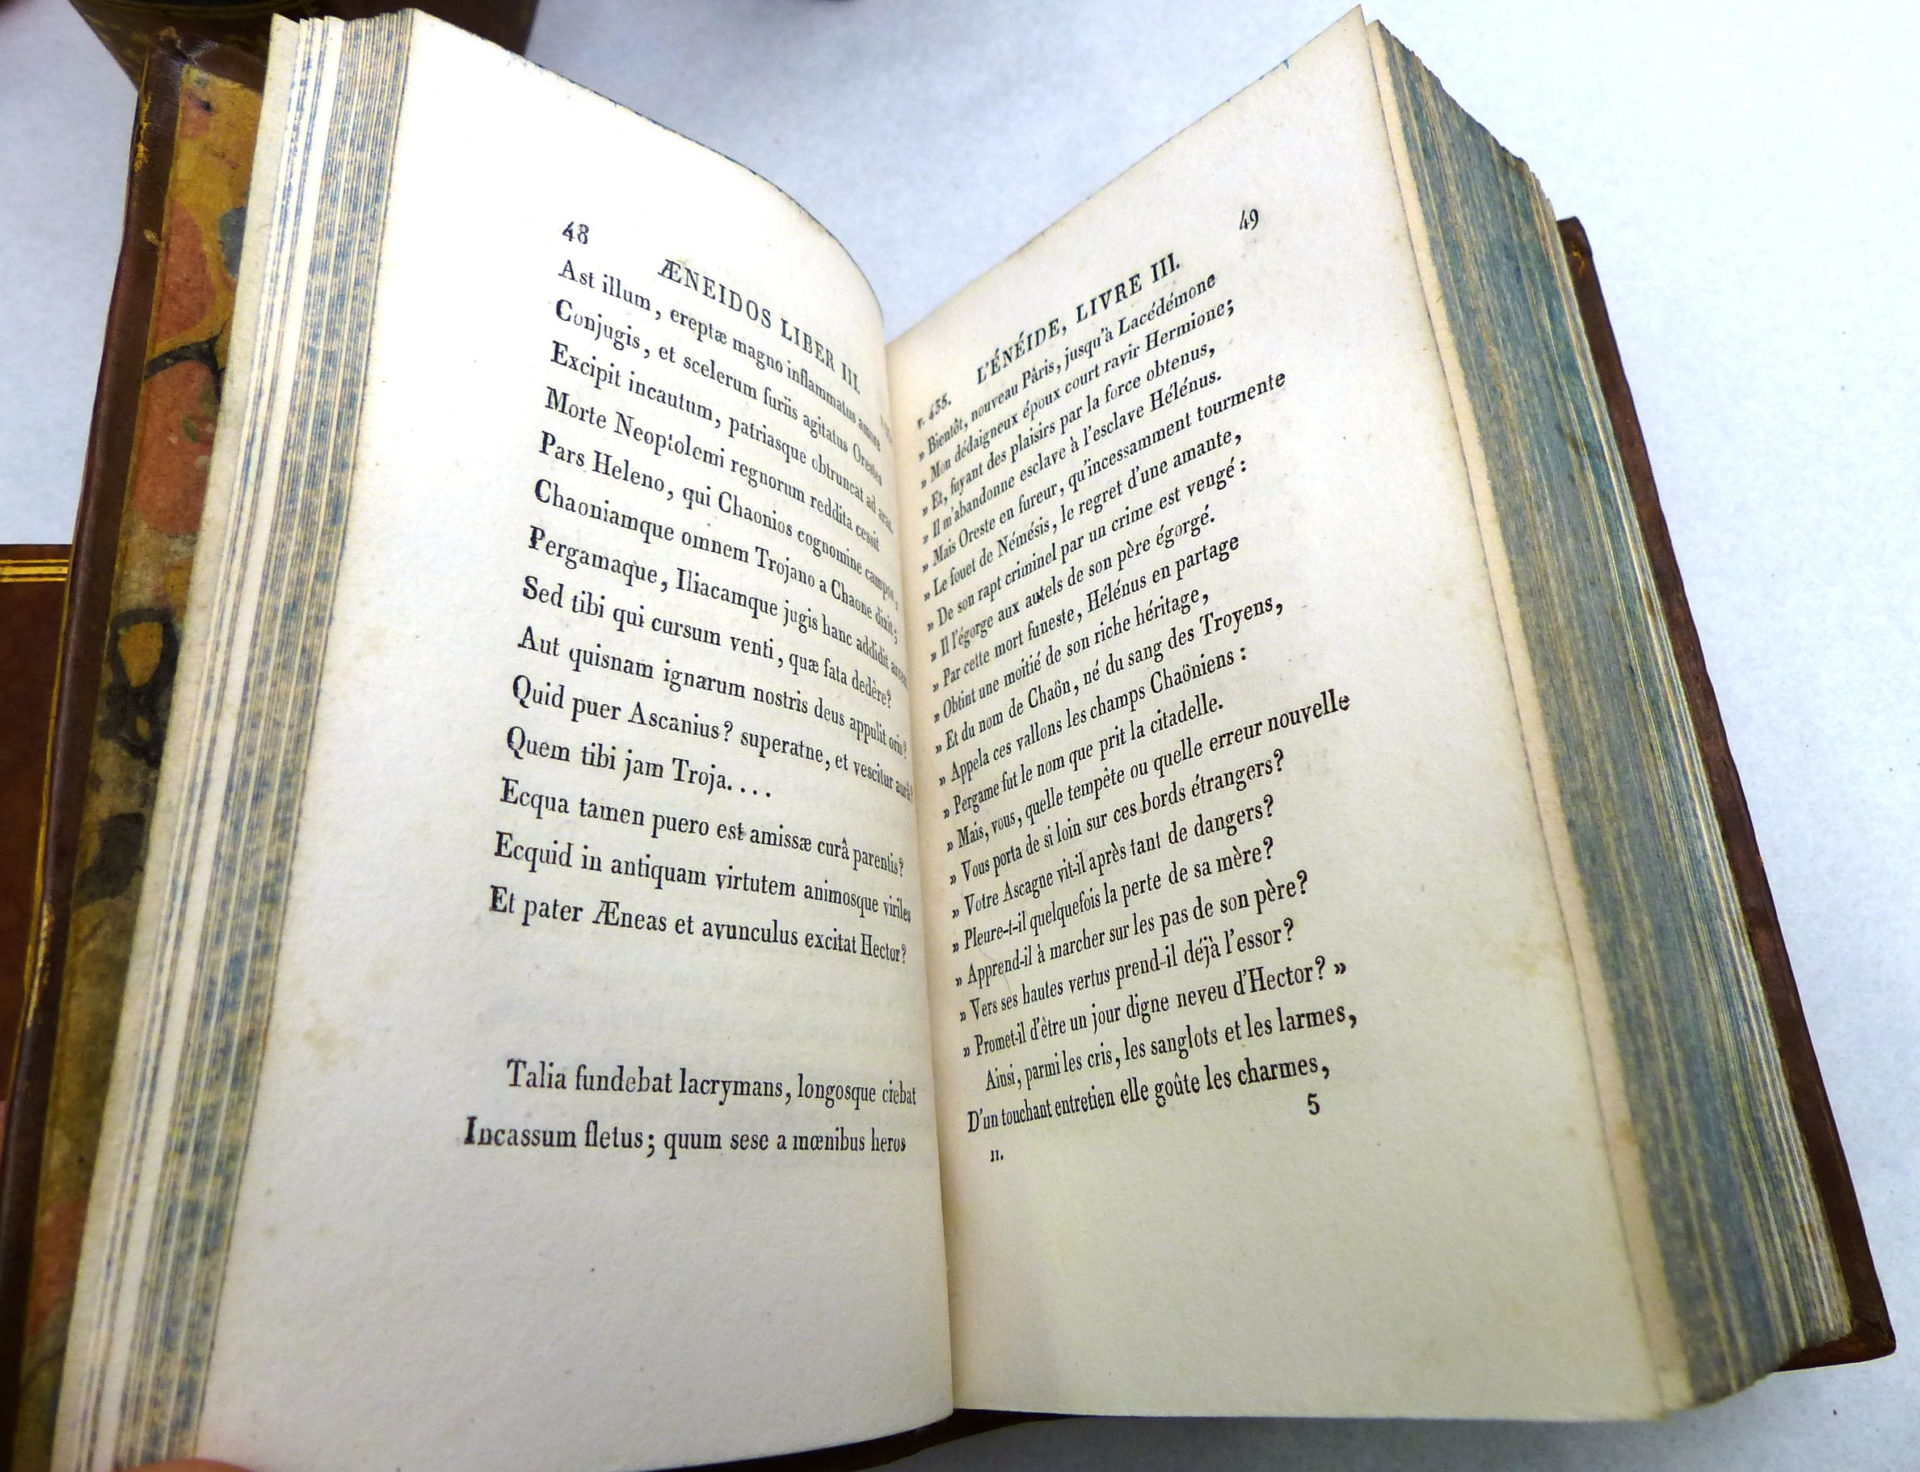 48
ÆNEIDOS LIBER III.
Ast illum, ereptæ magno inflammatus amore
Conjugis, et scelerum furiis agitatus Orestes
Excipit incautum, patriasque obtruncat ad aras.
Morte Neoptolemi regnorum reddita cessit
Pars Heleno, qui Chaonios cognomine campos,
Chaoniamque omnem Trojano a Chaone dixit;
Pergamaque, Iliacamque jugis hanc addidit arcem.
Sed tibi qui cursum venti, quæ fata dedère?
Aut quisnam ignarum nostris deus appulit oris?
Quid puer Ascanius? superatne, et vescitur aurâ?
Quem tibi jam Troja....
Ecqua tamen puero est amissæ curâ parentis?
Ecquid in antiquam virtutem animosque viriles
Et pater Æneas et avunculus excitat Hector?
Talia fundebat lacrymans, longosque ciebat
Incassum fletus; quum sese a mœnibus heros
49
L'ÉNÉIDE, LIVRE III.
v. 438.
» Bientôt, nouveau Pâris, jusqu'à Lacédémone
» Mon dédaigneux époux court ravir Hermione;
» Et, fuyant des plaisirs par la force obtenus,
» Il m'abandonne esclave à l'esclave Hélénus.
» Mais Oreste en fureur, qu'incessamment tourmente
» Le fouet de Némésis, le regret d'une amante,
» De son rapt criminel par un crime est vengé:
» Il l'égorge aux autels de son père égorgé.
» Par cette mort funeste, Hélénus en partage
» Obtint une moitié de son riche héritage,
» Et du nom de Chaön, né du sang des Troyens,
» Appela ces vallons les champs Chaöniens:
» Pergame fut le nom que prit la citadelle.
» Mais, vous, quelle tempête ou quelle erreur nouvelle
» Vous porta de si loin sur ces bords étrangers?
» Votre Ascagne vit-il après tant de dangers?
» Pleure-t-il quelquefois la perte de sa mère?
» Apprend-il à marcher sur les pas de son père?
» Vers ses hautes vertus prend-il déjà l'essor?
» Promet-il d'être un jour digne neveu d'Hector? »
Ainsi, parmi les cris, les sanglots et les larmes,
D'un touchant entretien elle goûte les charmes,
II.
5